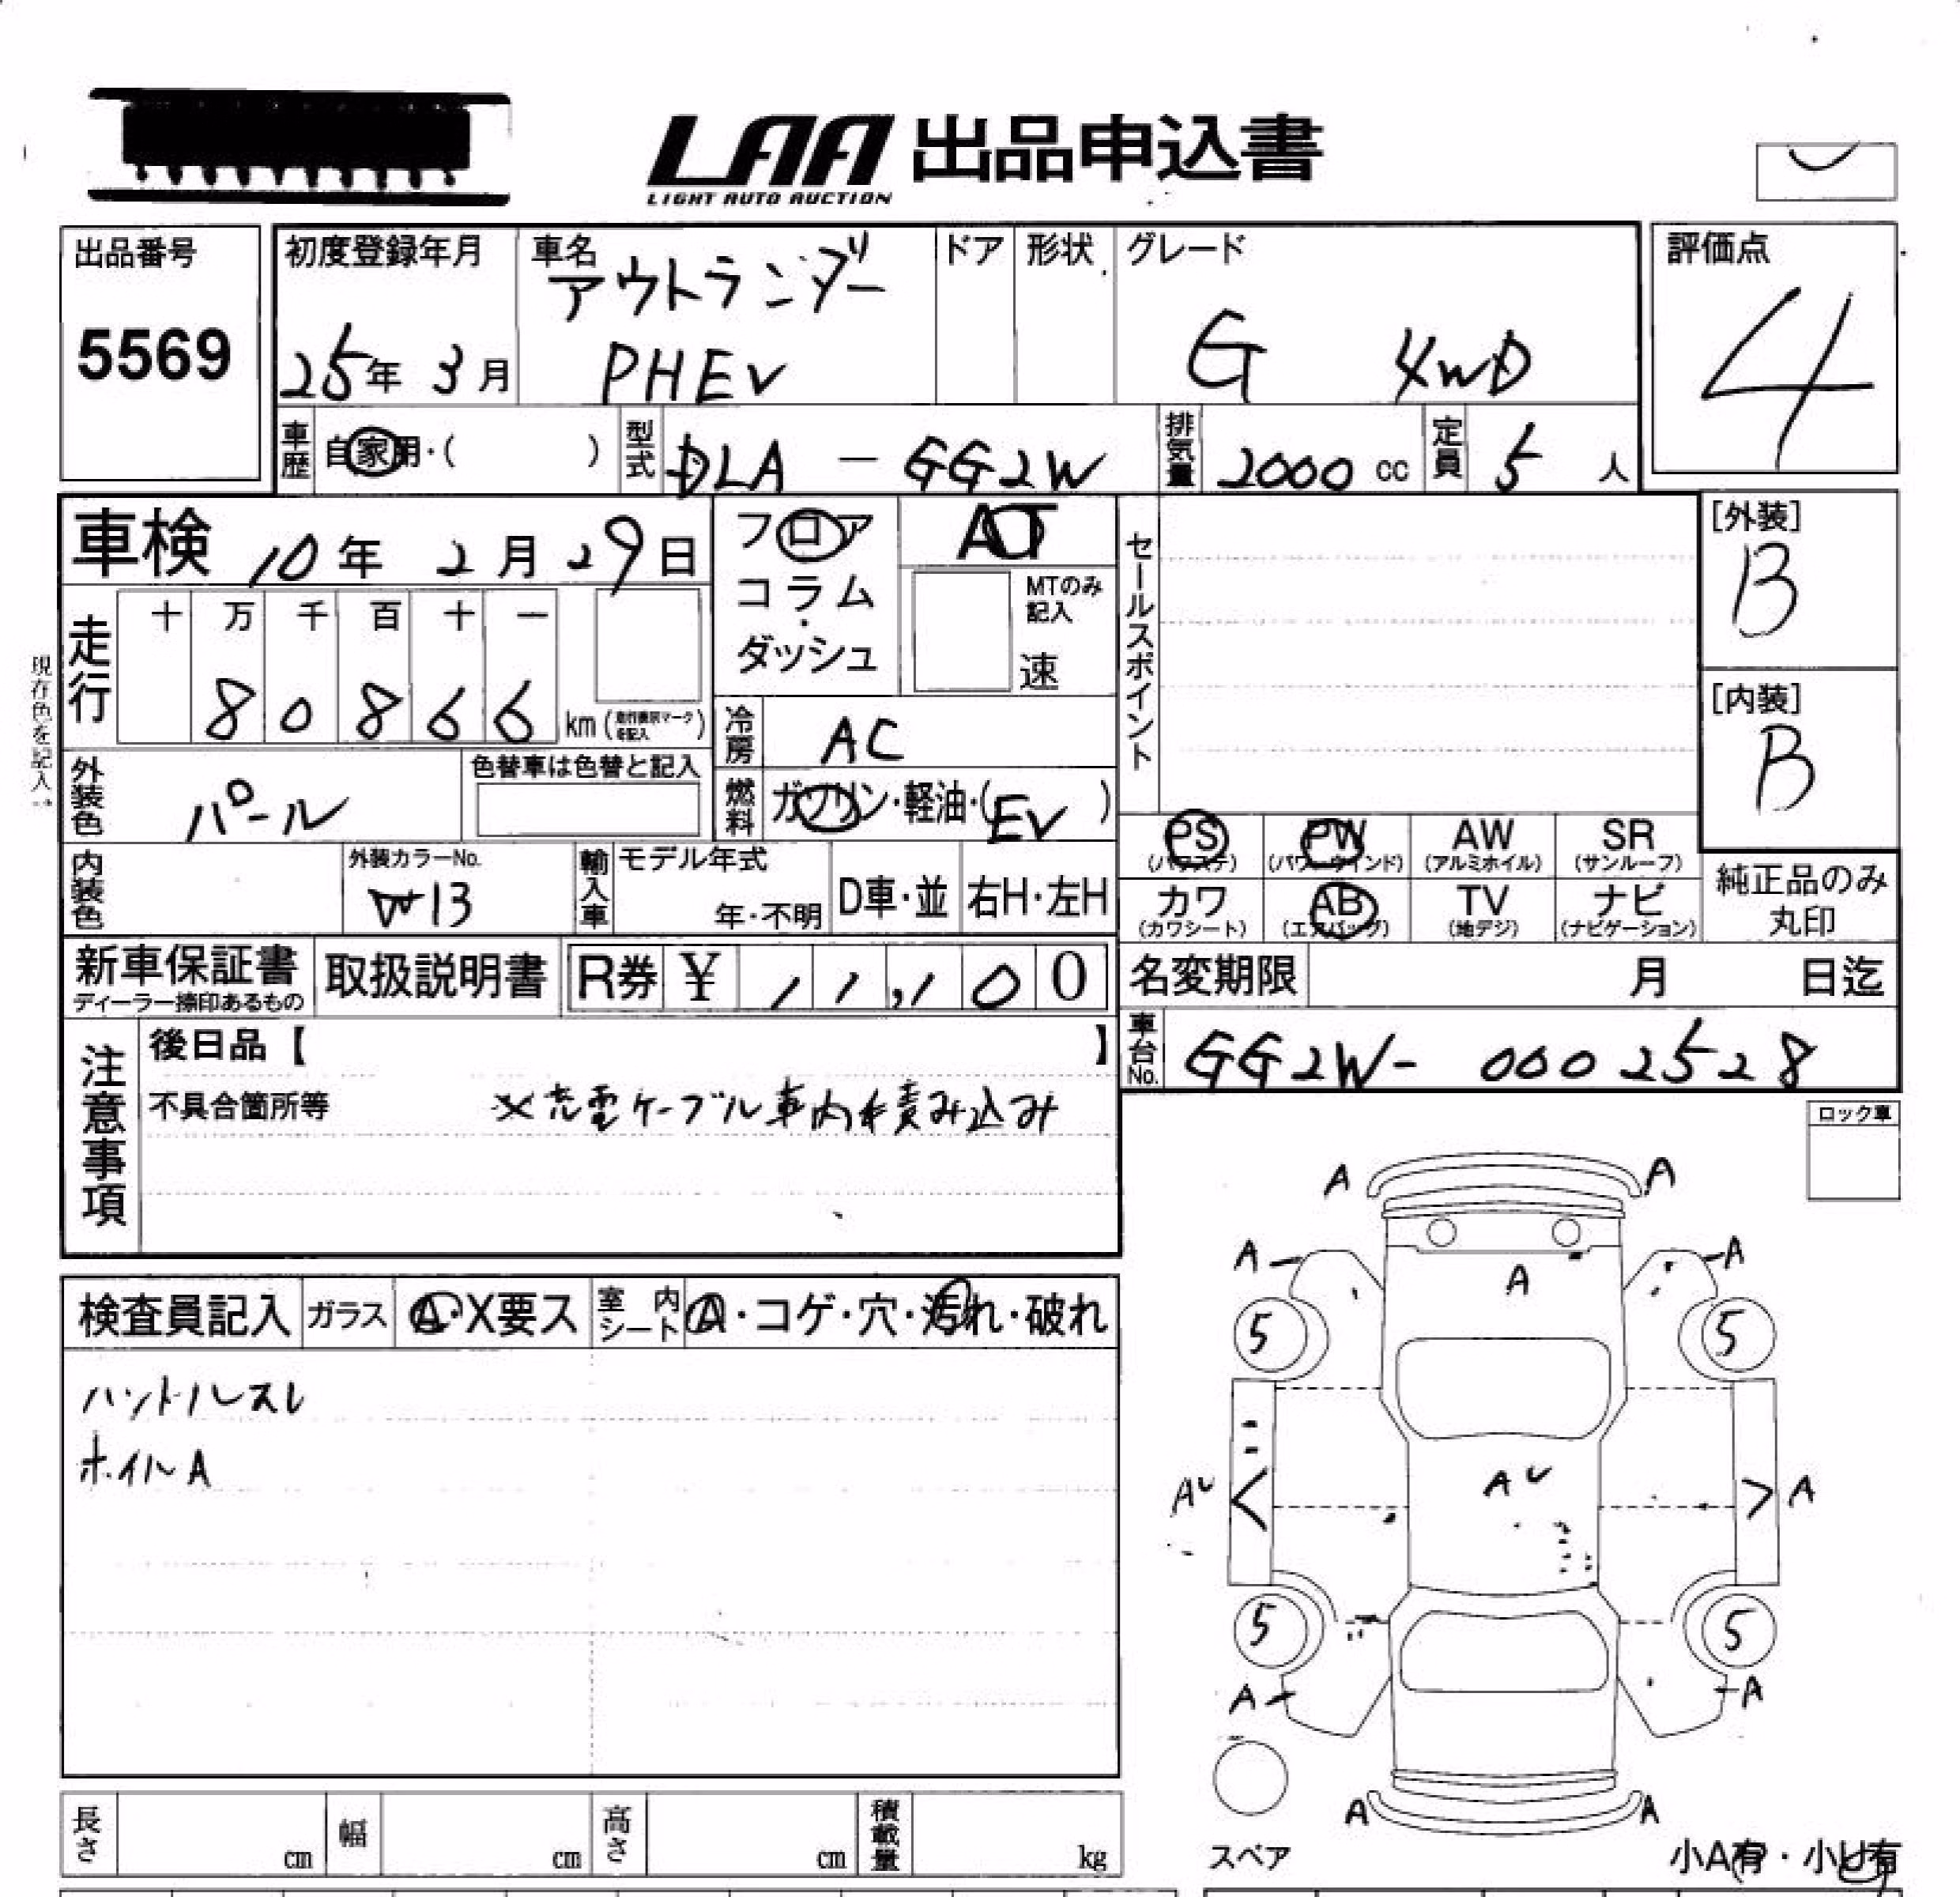 LAA 出品申込書
LIGHT AUTO AUCTION
出品番号
5569
初度登録年月
25年 3月
車名
アウトランダー
PHEV
ドア
形状
グレード
G 4WD
評価点
4
車歴
自家用・( )
型式
DLA - GG2W
排気量
2000 cc
定員
5 人
車検 10年 2月 29日
フロア
コラム
・
ダッシュ
AT
MTのみ
記入
速
セールスポイント
[外装]
B
[内装]
B
現在色を記入→
走行
十 万 千 百 十 一
8 0 8 6 6 km
冷房
AC
外装色
パール
色替車は色替と記入
燃料
ガソリン・軽油・(EV)
PS
(パワステ)
PW
(パワーウインド)
AW
(アルミホイル)
SR
(サンルーフ)
内装色
外装カラーNo.
W13
輸入車
モデル年式
年・不明
D車・並
右H・左H
カワ
(カワシート)
AB
(エアバッグ)
TV
(地デジ)
ナビ
(ナビゲーション)
純正品のみ
丸印
新車保証書
ディーラー捺印あるもの
取扱説明書
R券 ¥ 11,100
名変期限 月 日迄
車台No.
GG2W- 0002528
注意事項
後日品【 】
不具合箇所等 ※充電ケーブル車内積み込み
ロック車
検査員記入
ガラス
A・X要ス
室内シート
A・コゲ・穴・汚れ・破れ
ハンドルスレ
ホイルA
A A
A A
A
5 5
AU AU A
5 5
A A
A A
スペア
小A有・小U有
長さ cm
幅 cm
高さ cm
積載量 kg